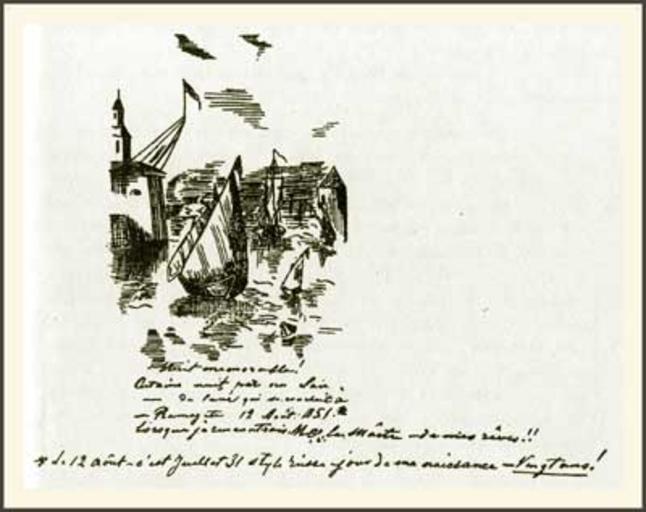 Nuit mémorable!
Certaine nuit par un clair
— de lune qui se couchait à
— Ramsgate 12 Août: 1851*
lorsque je rencontrais le Maître — de mes rêves!!
* Le 12 Août — c'est Juillet 31 style russe — jour de ma naissance — Vingt ans!